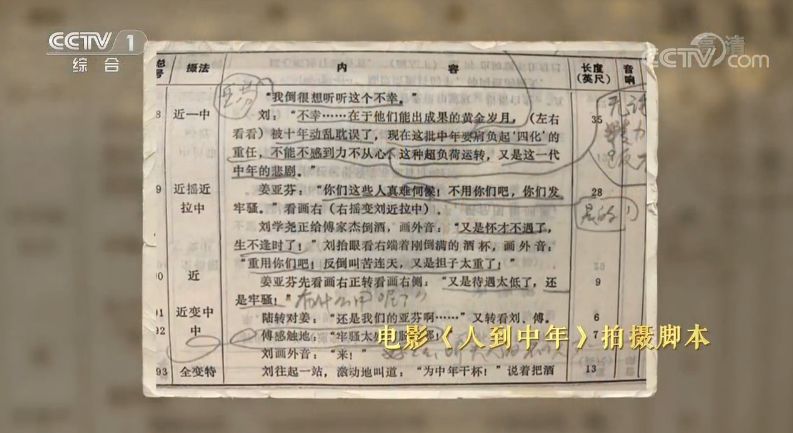 CCTV 1
综合
高清
CCTV.com
总号 摄法 内容 长度(英尺) 音响
“我倒很想听听这个不幸。”
8 近一中 刘:“不幸……在于他们能出成果的黄金岁月,(左右 35
看看)被十年动乱耽误了,现在这批中年要肩负起‘四化’的
重任,不能不感到力不从心,这种超负荷运转,又是这一代
中年的悲剧。”
9 近摇近 姜亚芬:“你们这些人真难伺候!不用你们吧,你们发 28
拉中 牢骚。”看画右(右摇变刘近拉中)。
刘学尧正给傅家杰倒酒,画外音:“又是怀才不遇了,
生不逢时了!”刘抬眼看右端着刚倒满的酒杯,画外音:
“重用你们吧!反倒叫苦连天,又是担子太重了!”
90 近 姜亚芬先看画右正转看画右侧:“又是待遇太低了,还 9
是牢骚!”
91 近变中 陆转对姜:“还是我们的亚芬啊……”又转看刘、傅, 6
92 中 傅感触地:“牢骚太 7
刘画外音:“来!”
93 全变特 刘往起一站,激动地叫道:“为中年干杯!”说着把酒 13
电影《人到中年》拍摄脚本